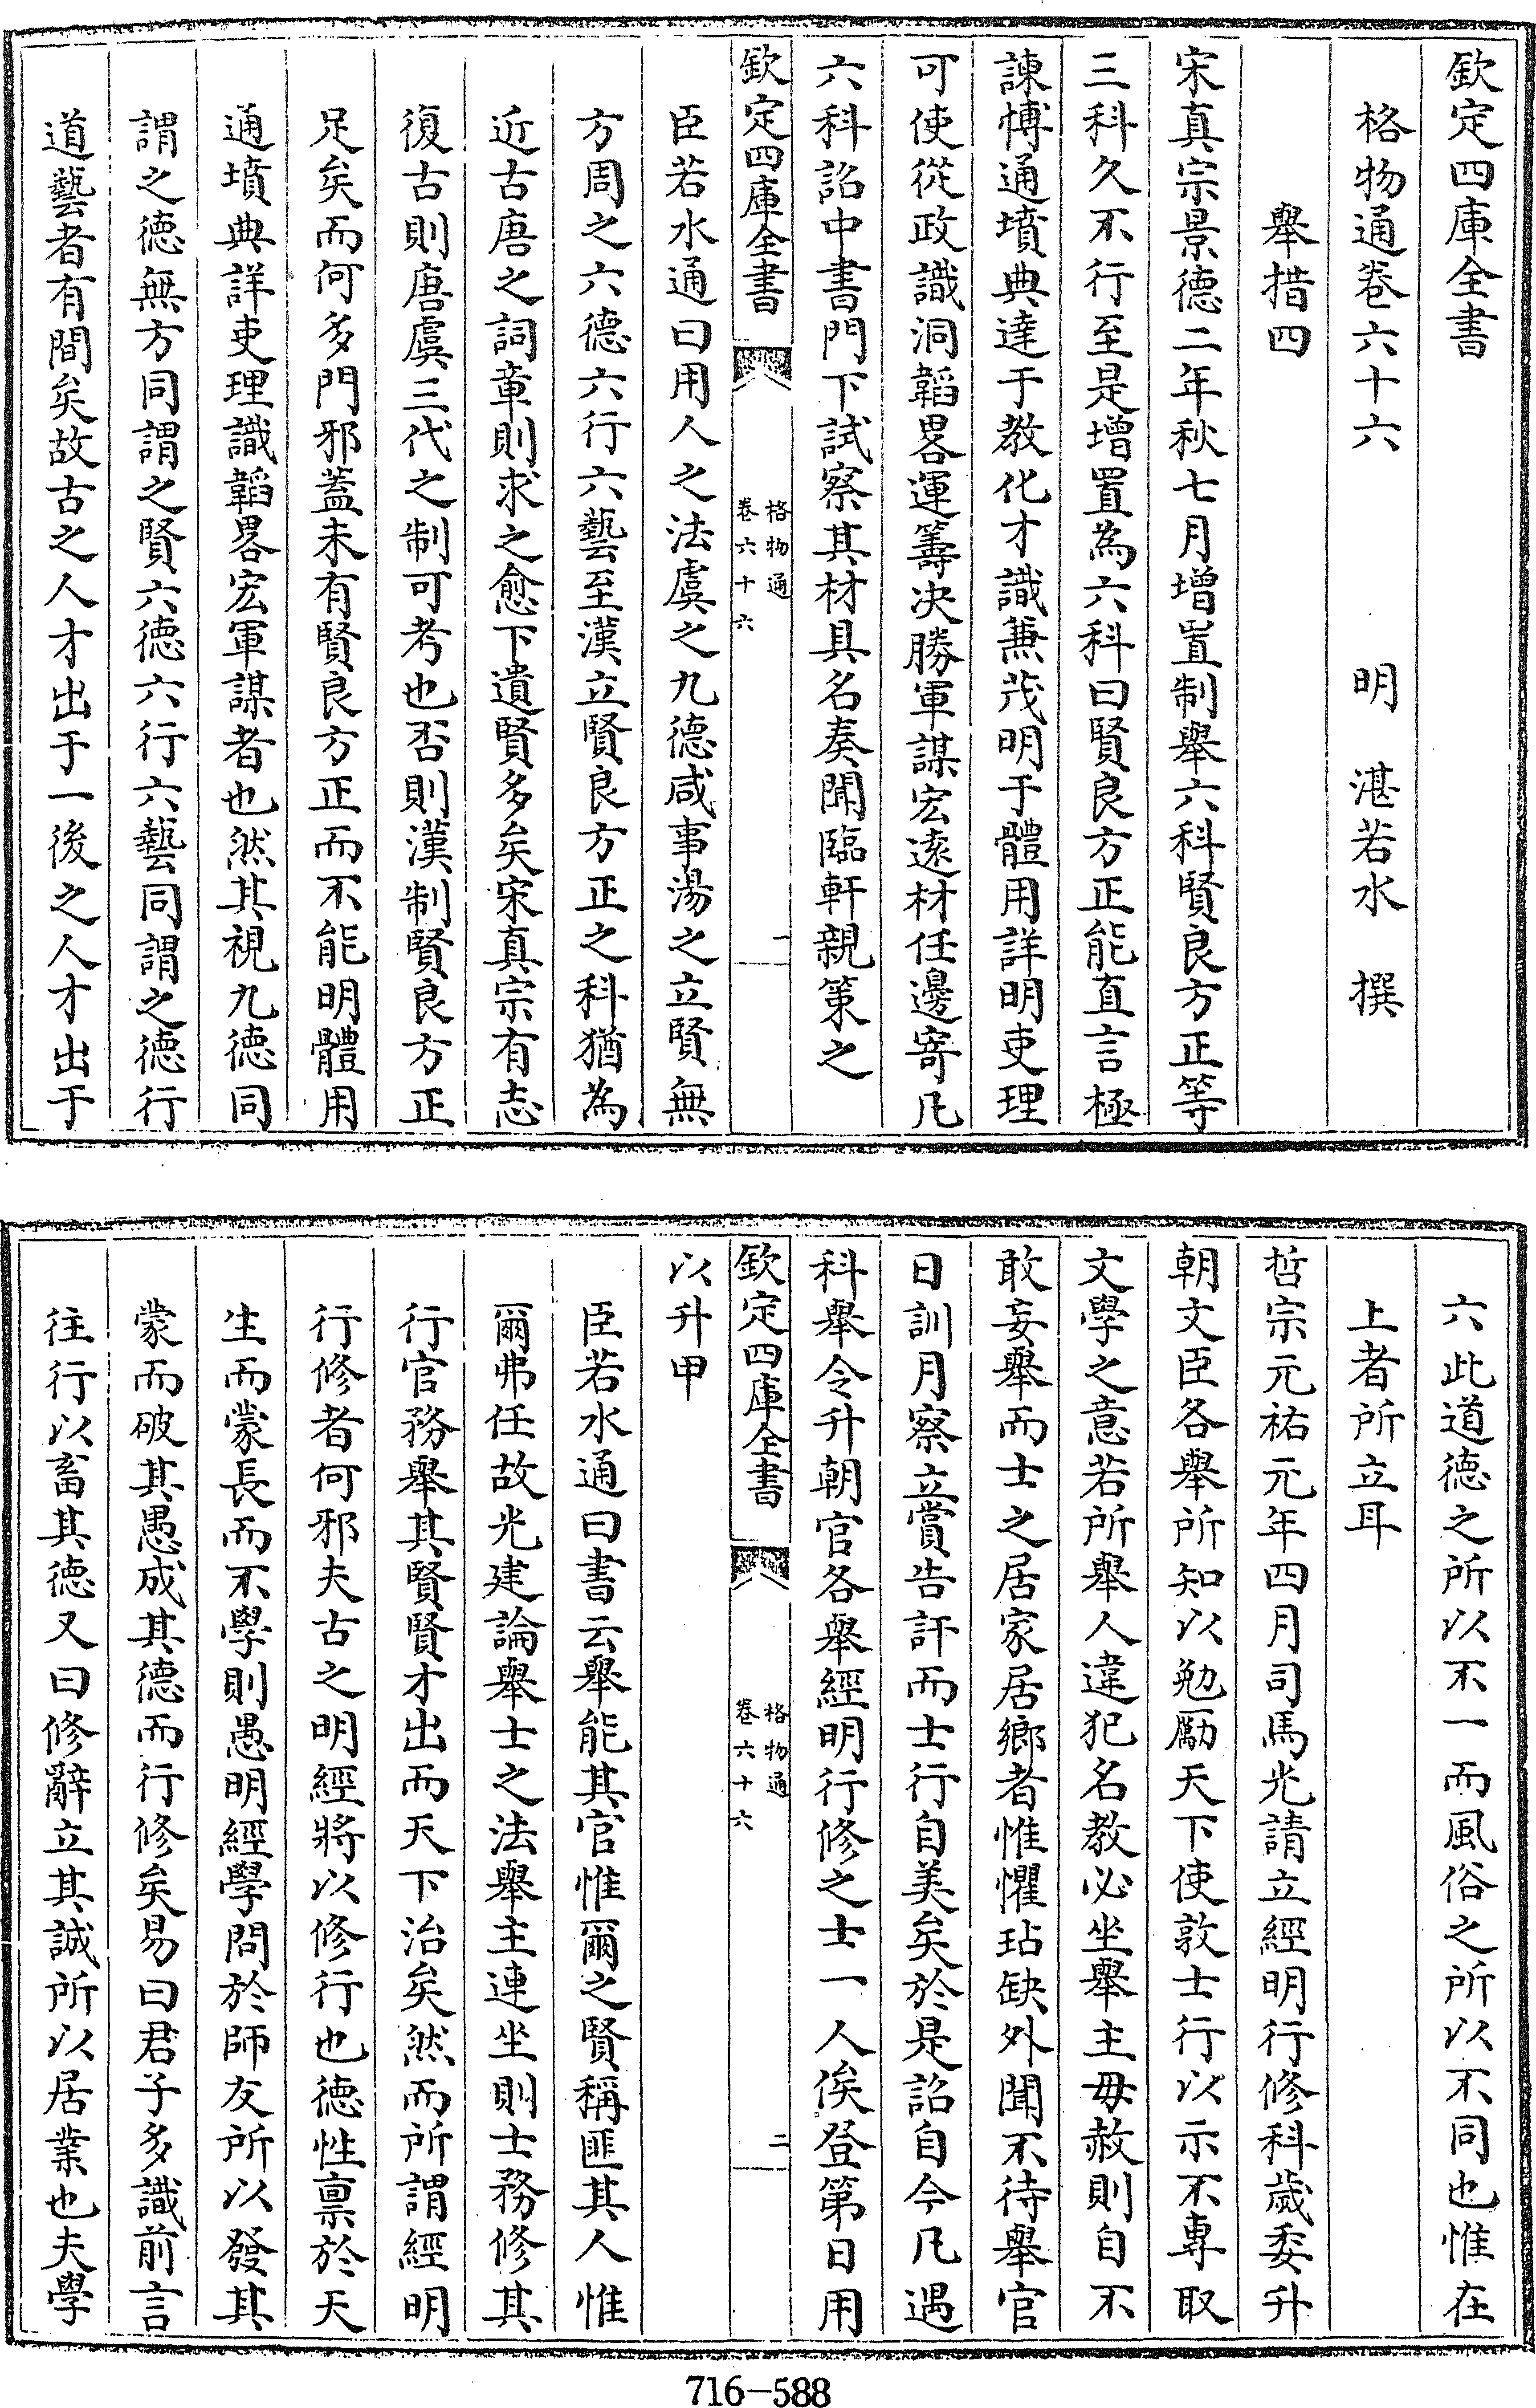 欽定四庫全書
格物通卷六十六　明　湛若水　撰
舉措四
宋真宗景德二年秋七月增置制舉六科賢良方正等
三科久不行至是增置為六科曰賢良方正能直言極
諫愽通墳典達于教化才識兼茂明于體用詳明吏理
可使從政識洞韜畧運籌决勝軍謀宏遠材任邊寄凡
六科詔中書門下試察其材具名奏聞臨軒親策之
欽定四庫全書
格物通
卷六十六
一
臣若水通曰用人之法虞之九德咸事湯之立賢無
方周之六德六行六藝至漢立賢良方正之科猶為
近古唐之詞章則求之愈下遺賢多矣宋真宗有志
復古則唐虞三代之制可考也否則漢制賢良方正
足矣而何多門邪蓋未有賢良方正而不能明體用
通墳典詳吏理識韜畧宏軍謀者也然其視九德同
謂之德無方同謂之賢六德六行六藝同謂之德行
道藝者有間矣故古之人才出于一後之人才出于
六此道德之所以不一而風俗之所以不同也惟在
上者所立耳
哲宗元祐元年四月司馬光請立經明行修科歲委升
朝文臣各舉所知以勉勵天下使敦士行以示不專取
文學之意若所舉人違犯名教必坐舉主毋赦則自不
敢妄舉而士之居家居鄉者惟懼玷缺外聞不待舉官
日訓月察立賞告訐而士行自美矣於是詔自今凡遇
科舉令升朝官各舉經明行修之士一人俟登第日用
欽定四庫全書
格物通
卷六十六
二
以升甲
臣若水通曰書云舉能其官惟爾之賢稱匪其人惟
爾弗任故光建論舉士之法舉主連坐則士務修其
行官務舉其賢賢才出而天下治矣然而所謂經明
行修者何邪夫古之明經將以修行也德性禀於天
生而蒙長而不學則愚明經學問於師友所以發其
蒙而破其愚成其德而行修矣易曰君子多識前言
往行以畜其德又曰修辭立其誠所以居業也夫學
716-588